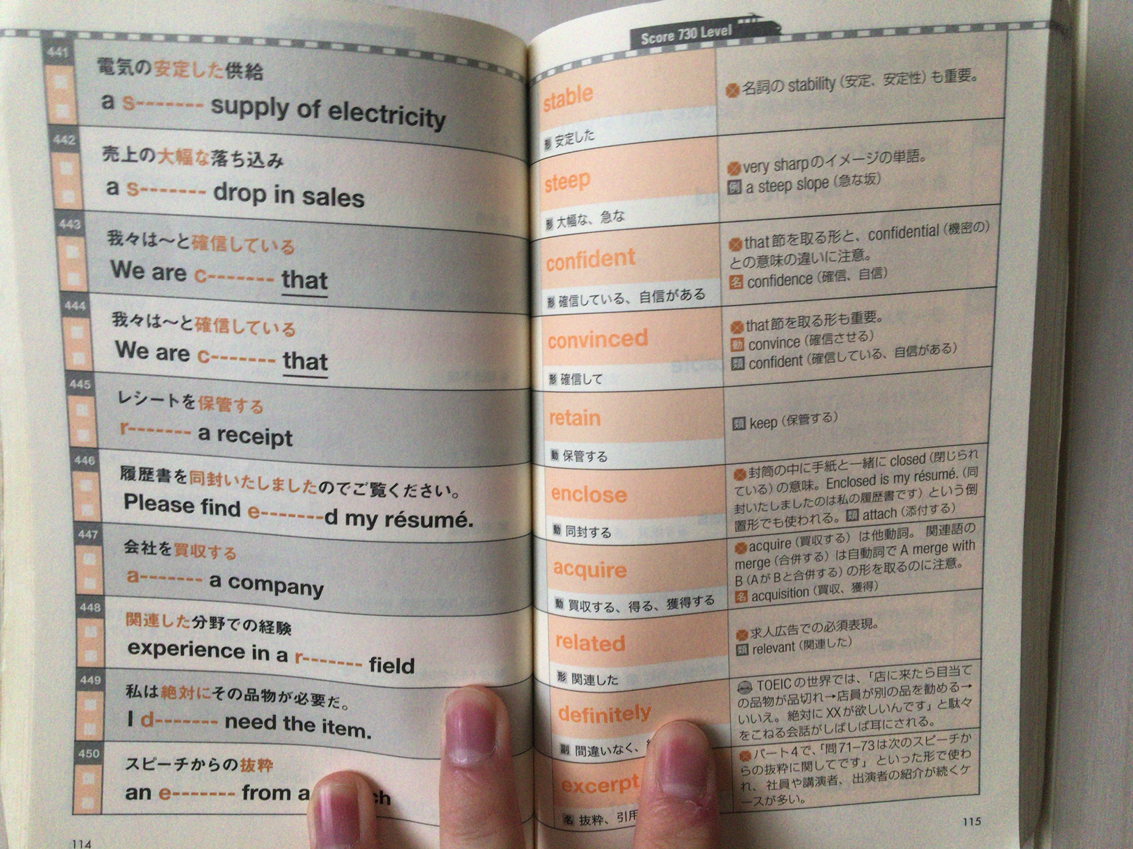 441
電気の安定した供給
a s------- supply of electricity
442
売上の大幅な落ち込み
a s------- drop in sales
443
我々は〜と確信している
We are c------- that
444
我々は〜と確信している
We are c------- that
445
レシートを保管する
r------- a receipt
446
履歴書を同封いたしましたのでご覧ください。
Please find e-------d my résumé.
447
会社を買収する
a------- a company
448
関連した分野での経験
experience in a r------- field
449
私は絶対にその品物が必要だ。
I d------- need the item.
450
スピーチからの抜粋
an e------- from a
114
Score 730 Level
stable
形 安定した
名詞の stability（安定、安定性）も重要。
steep
形 大幅な、急な
very sharpのイメージの単語。
例 a steep slope（急な坂）
confident
形 確信している、自信がある
that節を取る形と、confidential（機密の）
との意味の違いに注意。
名 confidence（確信、自信）
convinced
形 確信して
that節を取る形も重要。
動 convince（確信させる）
類 confident（確信している、自信がある）
retain
動 保管する
類 keep（保管する）
enclose
動 同封する
封筒の中に手紙と一緒に closed（閉じられ
ている）の意味。Enclosed is my résumé.（同
封いたしましたのは私の履歴書です）という倒
置形でも使われる。類 attach（添付する）
acquire
動 買収する、得る、獲得する
acquire（買収する）は他動詞。関連語の
merge（合併する）は自動詞で A merge with
B（AがBと合併する）の形を取るのに注意。
名 acquisition（買収、獲得）
related
形 関連した
求人広告での必須表現。
類 relevant（関連した）
definitely
副 間違いなく、
TOEICの世界では、「店に来たら目当て
の品物が品切れ→店員が別の品を勧める→
いいえ。絶対にXXが欲しいんです」と駄々
をこねる会話がしばしば耳にされる。
excerpt
名 抜粋、引用
パート4で、「問71–73は次のスピーチか
らの抜粋に関してです」といった形で使わ
れ、社員や講演者、出演者の紹介が続くケ
ースが多い。
115